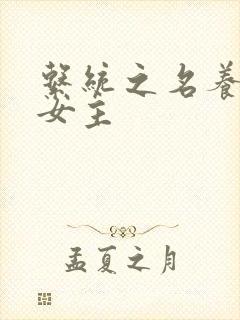 繫統之名養
女主
孟夏之月